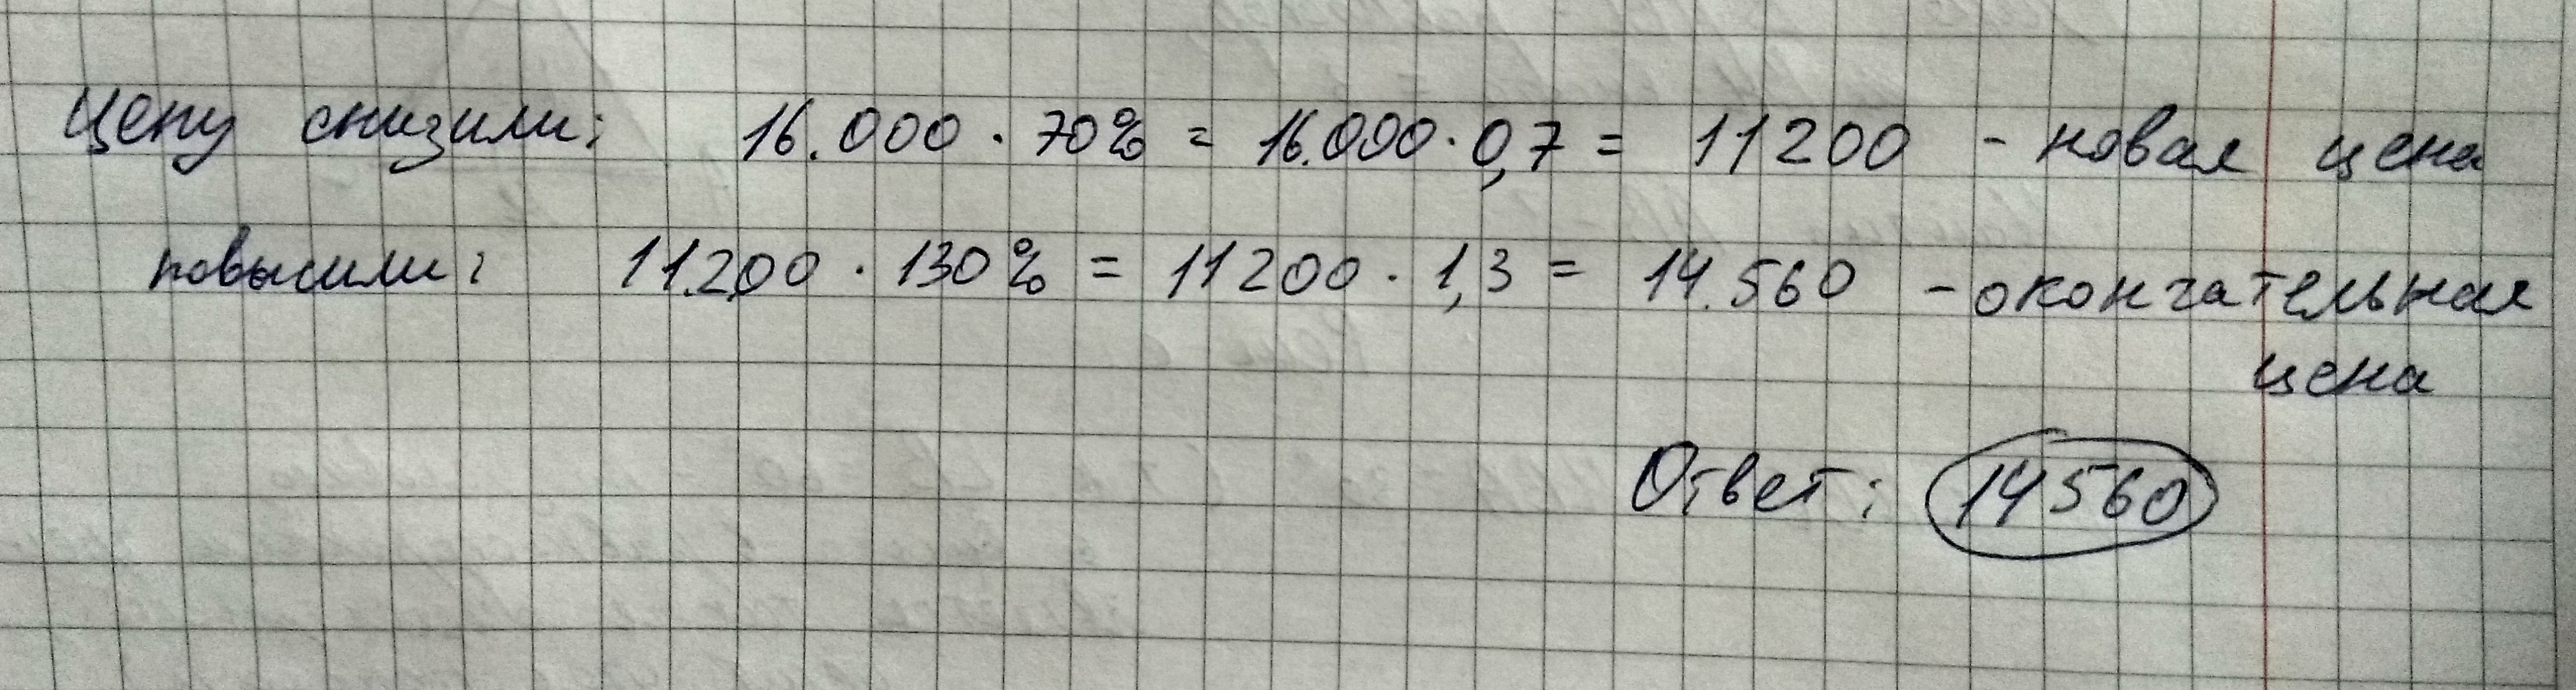 Цену снизили: 16.000 · 70% = 16.000 · 0,7 = 11200 - новая цена
повысили: 11.200 · 130% = 11200 · 1,3 = 14.560 - окончательная
цена
Ответ: 14560